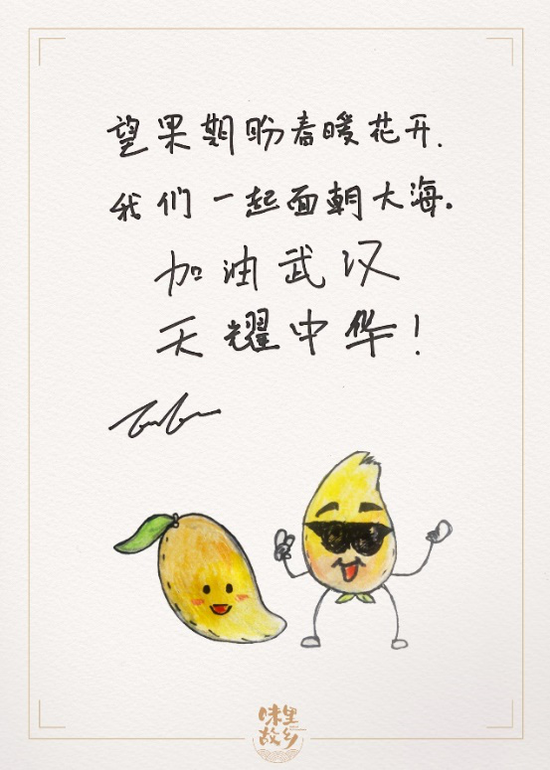 望果期盼春暖花开.
我们一起面朝大海.
加油武汉
天耀中华!
味里
故乡